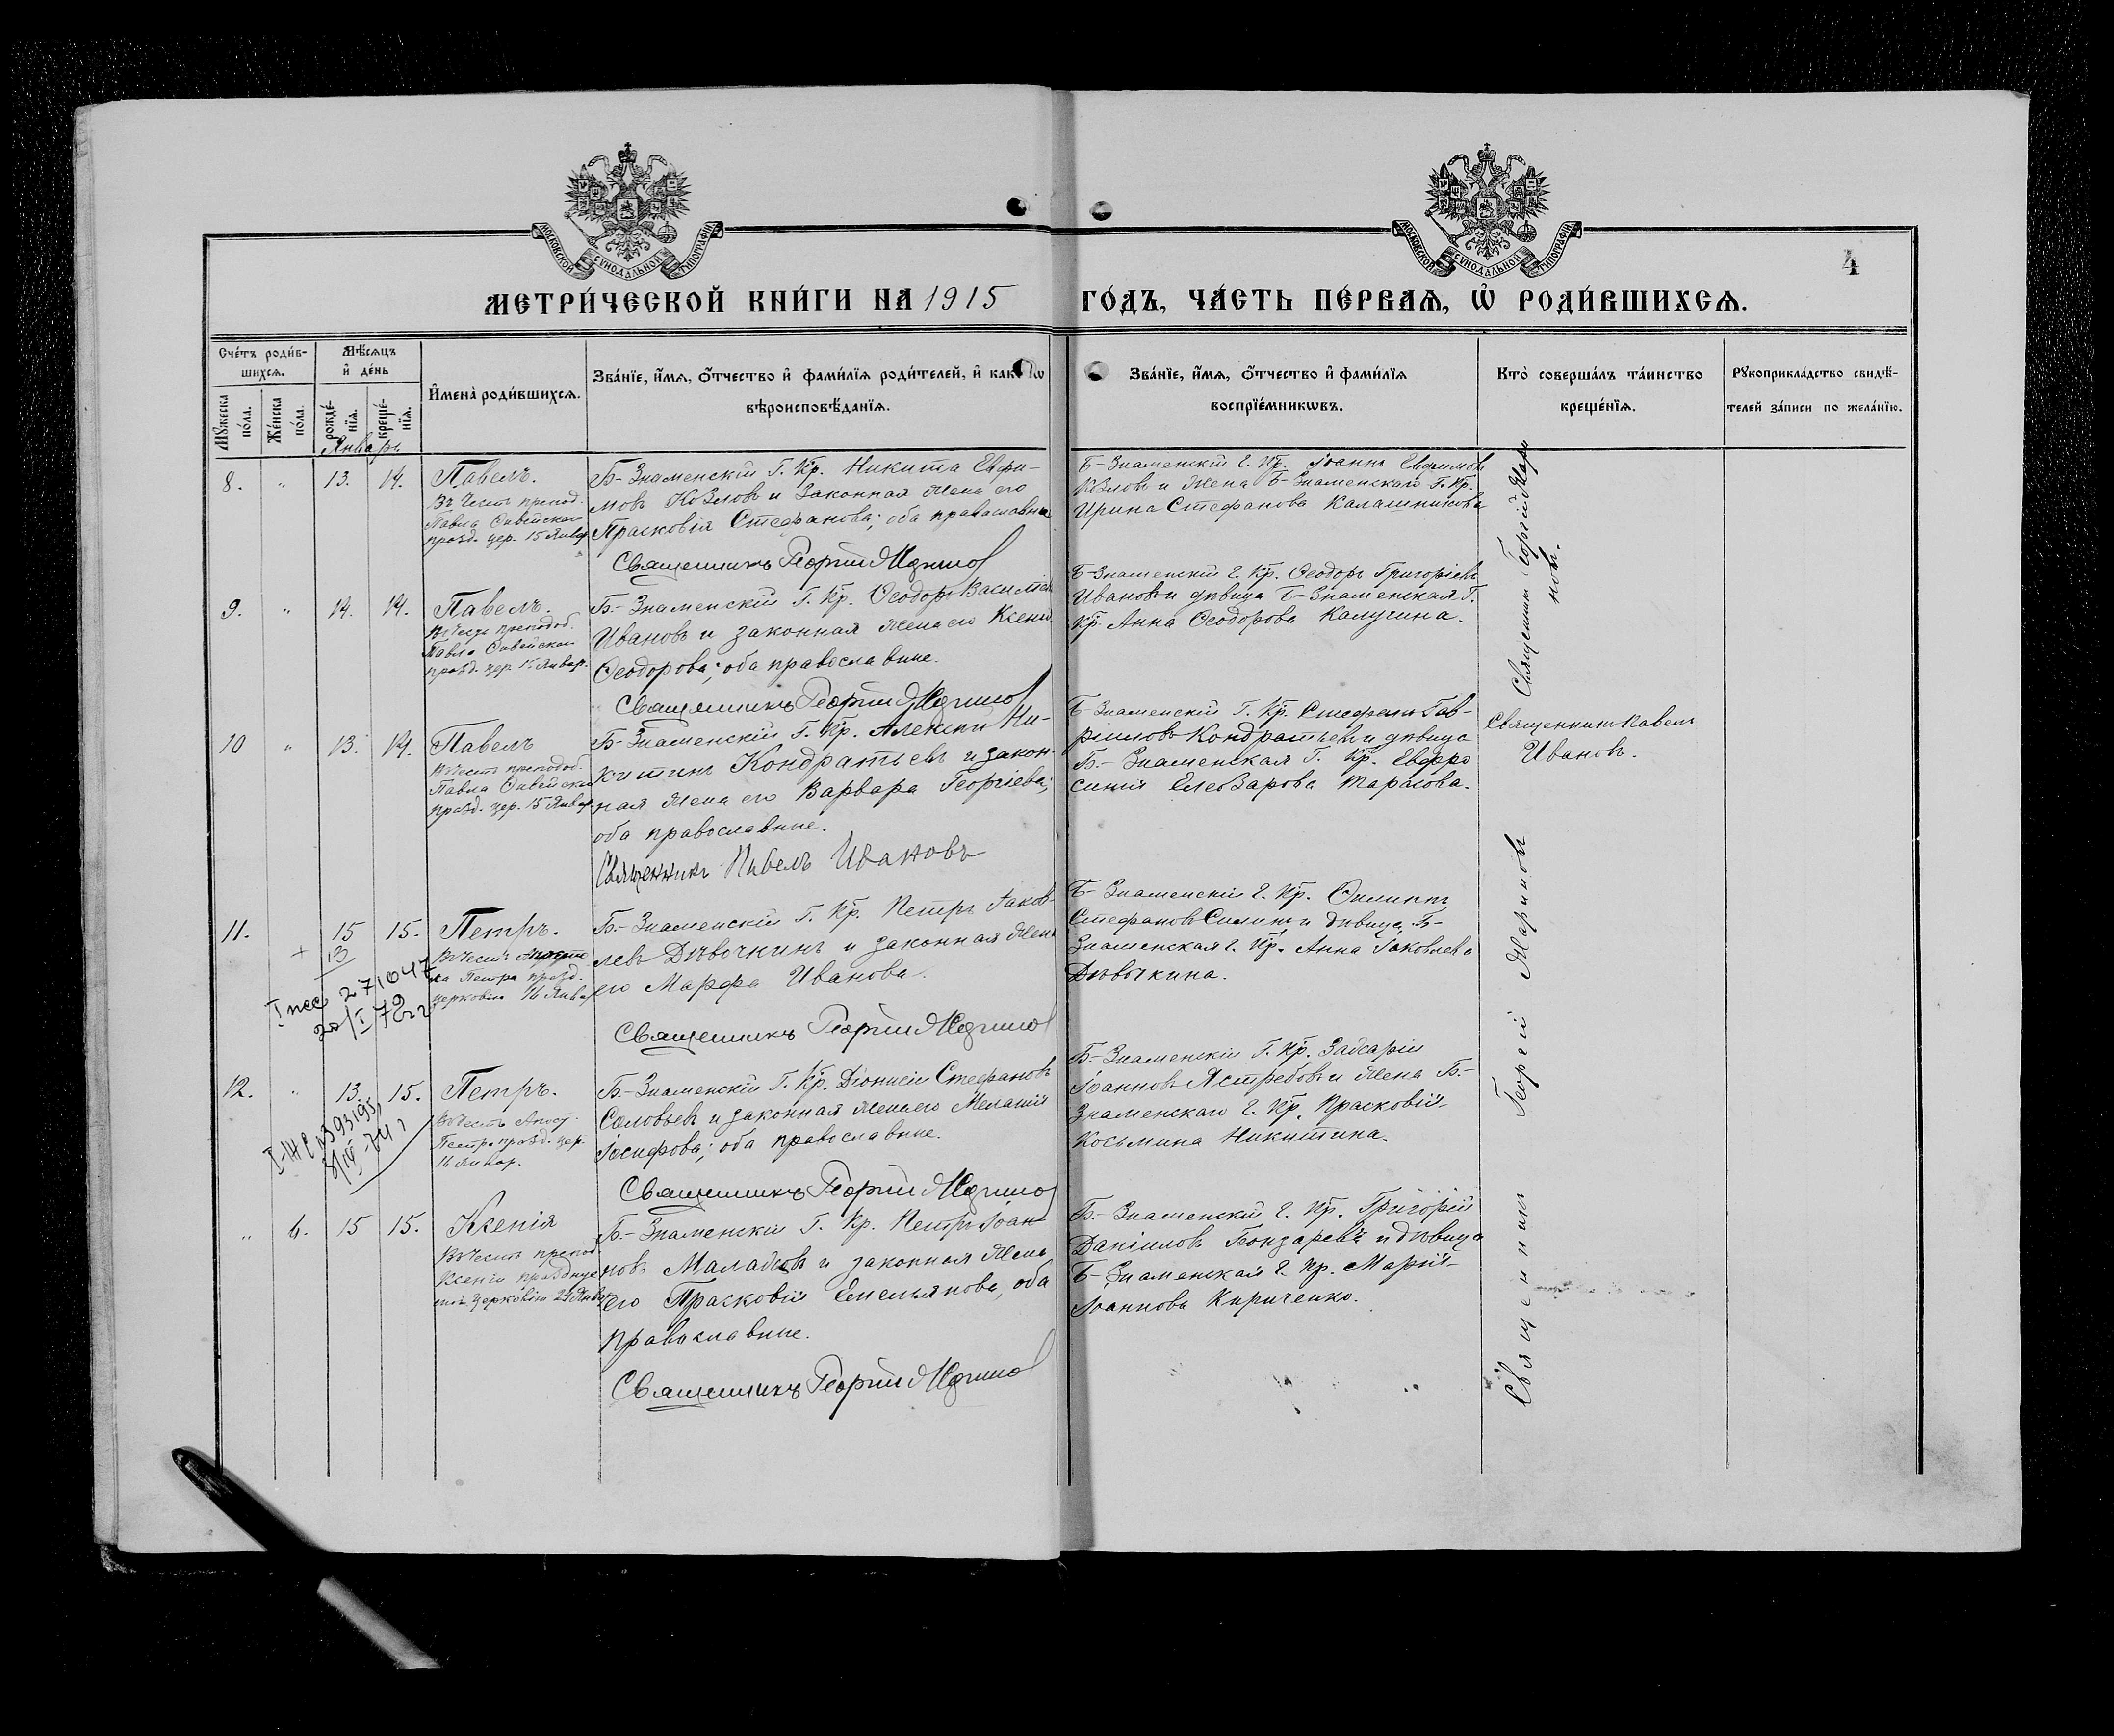 МОСКОВСКОЙ СѴНОДАЛЬНОЙ ТИПОГРАФІИ
МОСКОВСКОЙ СѴНОДАЛЬНОЙ ТИПОГРАФІИ
4
МЕТРИ́ЧЕСКОЙ КНИ́ГИ НА 1915 ГО́ДЪ, ЧА́СТЬ ПЕ́РВАѦ, Ѽ РОДИ́ВШИХСѦ.
Сче́тъ роди́в-
шихсѧ.
Мѣ́сѧцъ
и҆ де́нь
Мꙋ́жеска
по́ла.
Же́нска
по́ла.
рожде́-
нїѧ.
креще́-
нїѧ.
И҆мена̀ роди́вшихсѧ.
Зва́нїе, и҆́мѧ, ѻ҆́тчество и҆ фами́лїѧ роди́телей, и҆ како́гѡ
вѣроисповѣ́данїѧ.
Зва́нїе, и҆́мѧ, ѻ҆́тчество и҆ фами́лїѧ
воспрїе́мникѡвъ.
Кто̀ соверша́лъ та́инство
креще́нїѧ.
Рꙋкоприкла́дство свидѣ́-
телей за́писи по жела́нїю.
Январь
8. " 13. 14. Павелъ.
Въ честь препод.
Павла Ѳивейскаго
празд. цер. 15 Январ
Б-Знаменскій Г. Кр. Никита Евфи-
мовъ Козловъ и законная жена его
Прасковія Стефанова; оба православные
Священникъ Георгій
Б-Знаменскій Г. Кр. Іоаннъ Евфимовъ
Козловъ и жена Б-Знаменскаго Г. Кр.
Ирина Стефанова Калашникова
Священникъ Георгій Мари
новъ.
9. " 14. 14. Павелъ.
Въ честь преподоб.
Павла Ѳивейскаго
празд. цер. 15 Январ.
Б-Знаменскій Г. Кр. Ѳеодоръ Васильев
Ивановъ и законная жена его Ксенія
Ѳеодорова; оба православные.
Священникъ Георгій
Б-Знаменскій Г. Кр. Ѳеодоръ Григоріевъ
Ивановъ и дѣвица Б-Знаменская Г.
Кр. Анна Ѳеодорова Калугина.
10 " 13. 14. Павелъ
Въ честь преподоб.
Павла Ѳивейскаго
празд. цер. 15 Январ.
Б-Знаменскій Г. Кр. Алексій Ни-
китинъ Кондратьевъ и закон-
ная жена его Варвара Георгіева;
оба православные.
Священникъ Павелъ Ивановъ
Б-Знаменскій Г. Кр. Стефанъ Гав-
ріиловъ Кондратьевъ и дѣвица
Б-Знаменская Г. Кр. Евфро
синія Елеозарова Тарасова.
Священникъ Павелъ
Ивановъ.
11. 15 15. Петръ.
13
Въ честь
ла Петра празд.
церковію 16 Январ
I 271047
Б-Знаменскій Г. Кр. Петръ Іаков-
левъ Дѣвочкинъ и законная жена
его Марфа Иванова.
Священникъ Георгій
Б-Знаменскій Г. Кр. Филиппъ
Стефановъ Силинъ и дѣвица Б-
Знаменская Г. Кр. Анна Іаковлева
Дѣвочкина.
12. " 13. 15. Петръ.
Въ честь Апост
Петра празд. цер.
16 Январ.
Б-Знаменскій Г. Кр. Діонисій Стефановъ
Соловьевъ и законная жена его Меланія
Іосифова; оба православные.
Священникъ Георгій
Б-Знаменскій Г. Кр. Захарія
Іоанновъ Ястребовъ и жена Б-
Знаменскаго Г. Кр. Прасковія
Косьмина Никитина.
" 6. 15 15. Ксенія
Въ честь препод.
Ксеніи праздные
мой церковію 24 Январ
Б-Знаменскій Г. Кр. Петръ Іоан-
новъ и законная жена
его Прасковія Емельянова, оба
православные.
Священникъ Георгій
Б-Знаменскій Г. Кр. Григорій
Даніиловъ Гонзаревъ и дѣвица
Б-Знаменская Г. Кр. Марія
Іоаннова Кириченко.
Священникъ Георгій Мариновъ